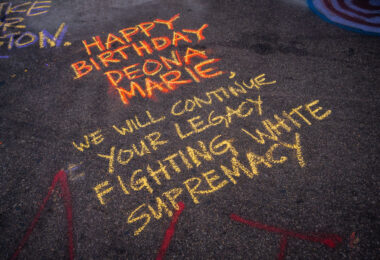 HAPPY
BIRTHDAY
DEONA
MARIE
WE WILL CONTINUE
YOUR LEGACY
FIGHTING WHITE
SUPREMACY